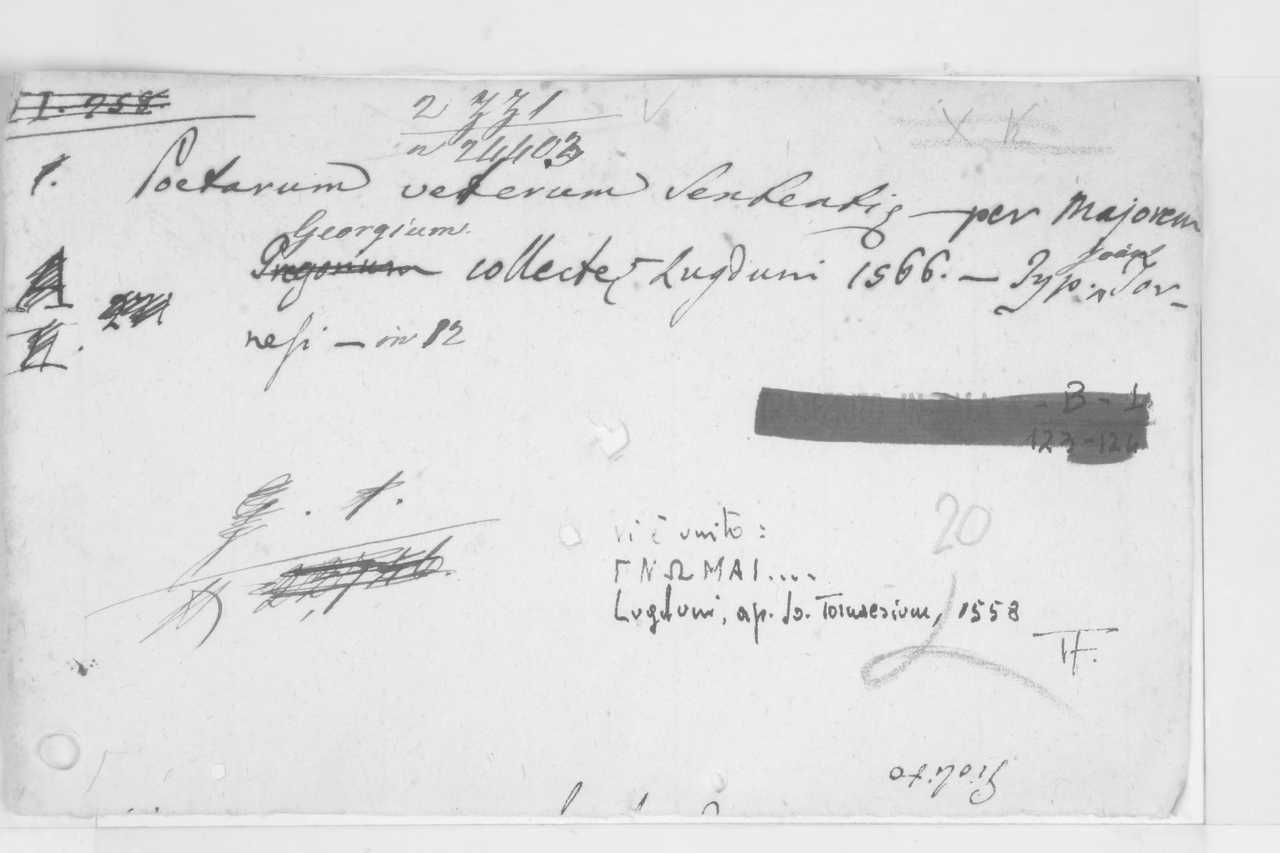 I. 958
2 331
n 24403
X K
1. Poetarum veterum Sententię - per Majorem
Georgium
Gregorium collectę - Lugduni 1566. - Typ. Joan Tor-
nesi - in 12
- B - L
123-124
1.
20
Vi è unito:
ΓΝΩΜΑΙ....
Lugduni, ap. Jo. Tornaesium, 1558
TF.
Giolito